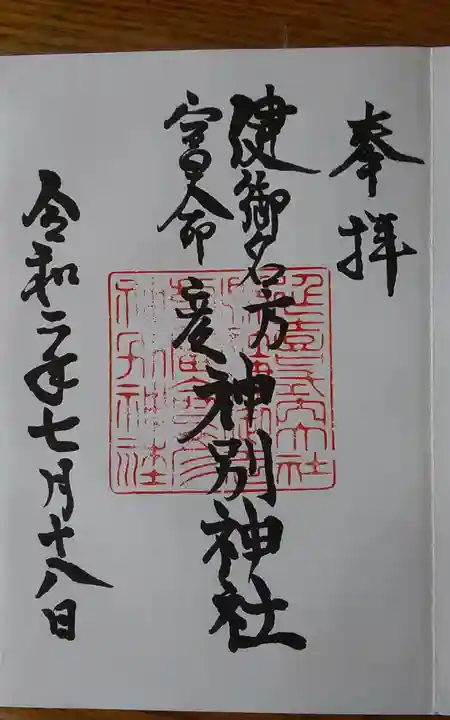 奉拝
健御名方
富命
彦神別神社
令和二年七月十八日